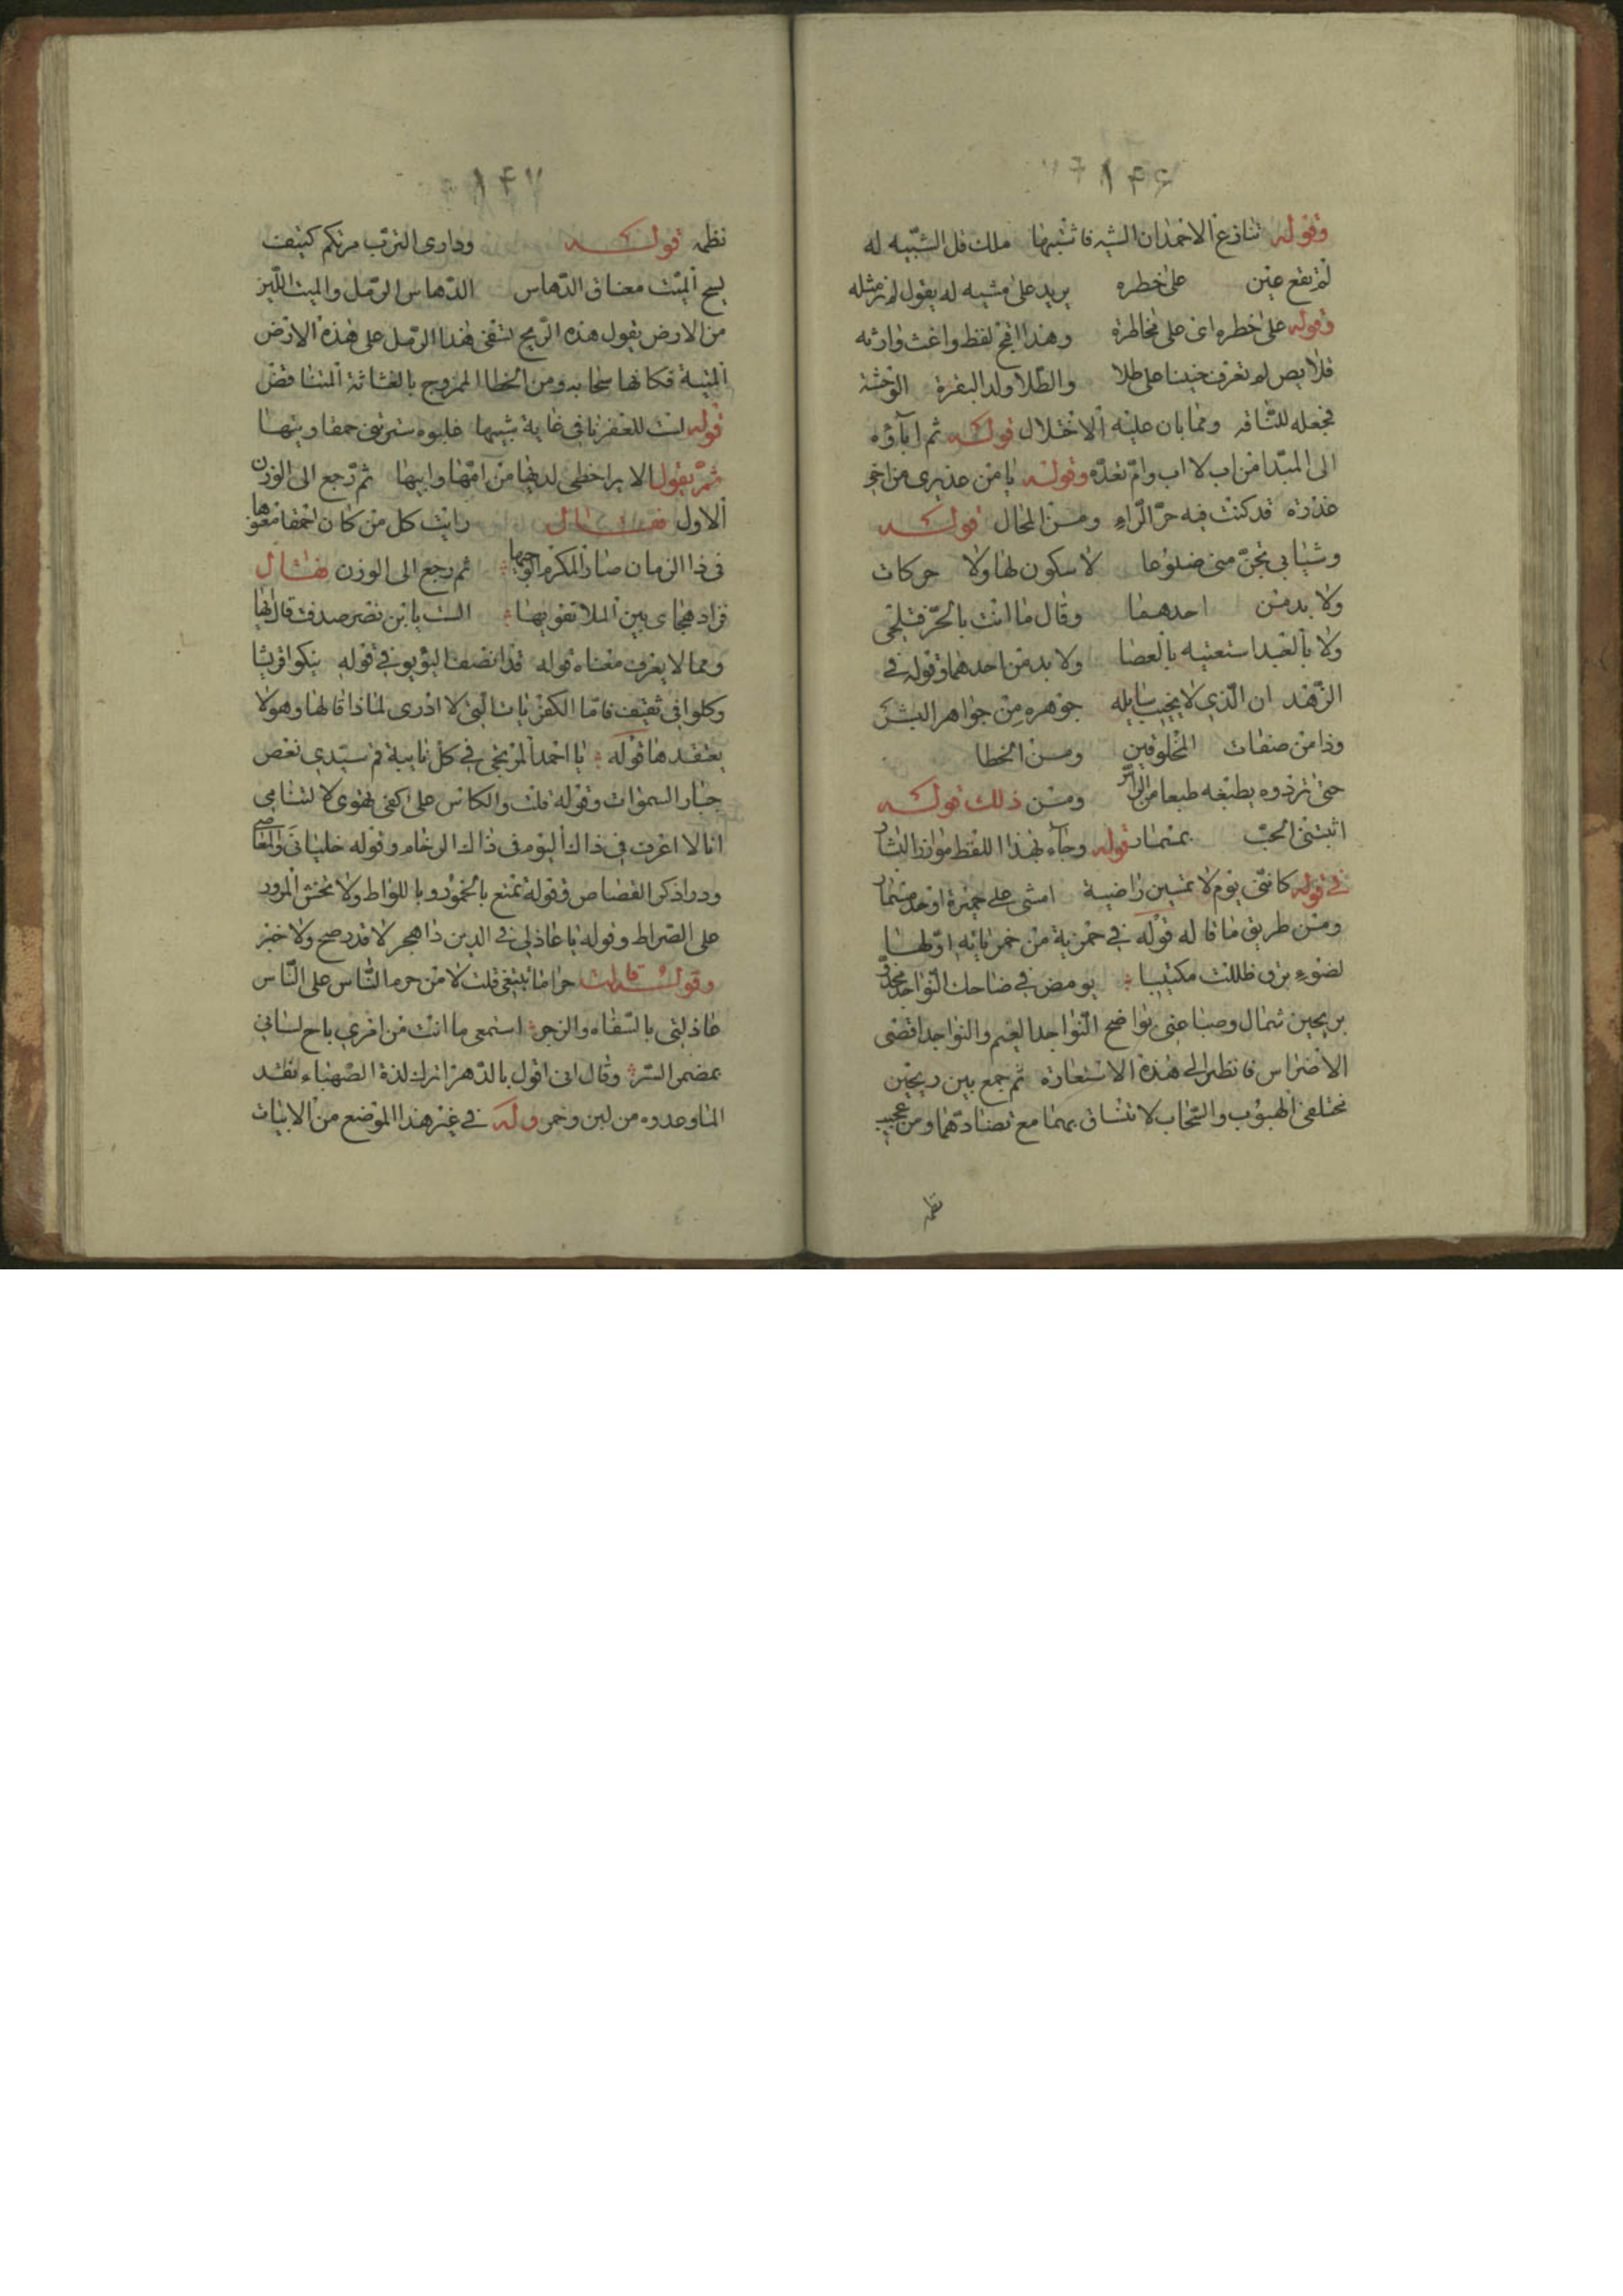 ١٤٦
وقوله تنازع الاحمدان الشبه فاشتبها ملك قل الشبيه له
لم تقع عين على خطره يريد على مشبه له يقول لم نر مثله
وقوله على خطره اى على مخاطرة وهذا اقبح لفظ واغث وارثه
على طلا والطلا ولد البقرة الوحشة
فجعله للناقه ومما بان عليه الاختلال قوله ثم اباوه
الى المبتدا من اب لا اب وام تعده وقوله يا من عذيرى من اخ
غدره قد كنت فيه حر الراء ومن المحال قوله
وشبابى تجن منى ضلوعا لا سكون لها ولا حركات
ولا بد من احدهما وقال ما انت بالحر فتلحى
ولا بالعبد استعتبه بالعصا ولا بد من احدهما وقوله فى
الزهد ان الذي لا يجيب سايله جوهره من جواهر البشر
وذا من صفات المخلوقين ومن الخطا
حتى تردوه بطبعه طبعا من ومن ذلك قوله
اثبتنى الحب بمسمار قوله وجاء بهذا اللفظ
فى قوله كاننى يوم لا تمسين راضية امشى على جمرة او حد مسمار
ومن طريق ما قاله قوله في خمرية من خمرياته اولها
لضوء برق ظللت مكتيبا يومض في ضاحك النواجد
بريحين شمال وصبا عنى بواضح النواجد الغيم والنواجد اقصى
الاضراس فانظر الى هذه الاستعارة ثم جمع بين ريحين
مختلفى الهبوب والسحاب لا تنساق بهما مع تضادهما ومن عجيب
نظمه
١٤٧
نظمه قوله ودارى الترب مرتكم كثيف
يسح الميت معناق الدهاس الدهاس الرمل والميت اللين
من الارض يقول هذه الريح تسقى هذا الرمل على هذه الارض
الميتة فكانها سحابه ومن الخطا الممزوج بالغثاثة المتناقض
قوله لست للعفرنا فى غاية شبها
ثم يقول الا يرا خطى لديها من امها وابيها ثم رجع الى الوزن
الاول فقال رايت كل من كان احمقا معتوها
فى ذا الزمان صار المكرم الوجيها ثم رجع الى الوزن فقال
فزاد هجاى بين الملا تفويها الست يا ابن نصر صدفت قال لها
ومما لا يعرف معناه قوله قد انصف البويو في قوله نيكوا قريشا
وكلوا فى ثقيف فاما الكفريات التى لا ادرى لماذا قالها وهو لا
يعتقدها قوله يا احمد المرتجى في كل نايبة قم سيدي نعص
جبار السموات وقوله قلت والكاس على كفى تهوى لالتثامى
انا لا اعرف فى ذاك اليوم فى ذاك الزحام وقوله خليانى والمعاصى
ودرا ذكر القصاص وقوله تمتع بالخمور وباللواط ولا تخش المرور
على الصراط وقوله يا عاذلى في الدين ذا هجر لا قدر صح ولا خبر
وقوله قالت حراما تبتغى قلت لا من حرم الناس على الناس
عاذلتى بالسفاه والزجر استمعى ما ابث من امري باح لسانى
بمضمر السر وقال انى اقول بالدهر اترك لذة الصهباء نقد
لما وعدوه من لبن وخمر وله في غير هذا الموضع من الابيات